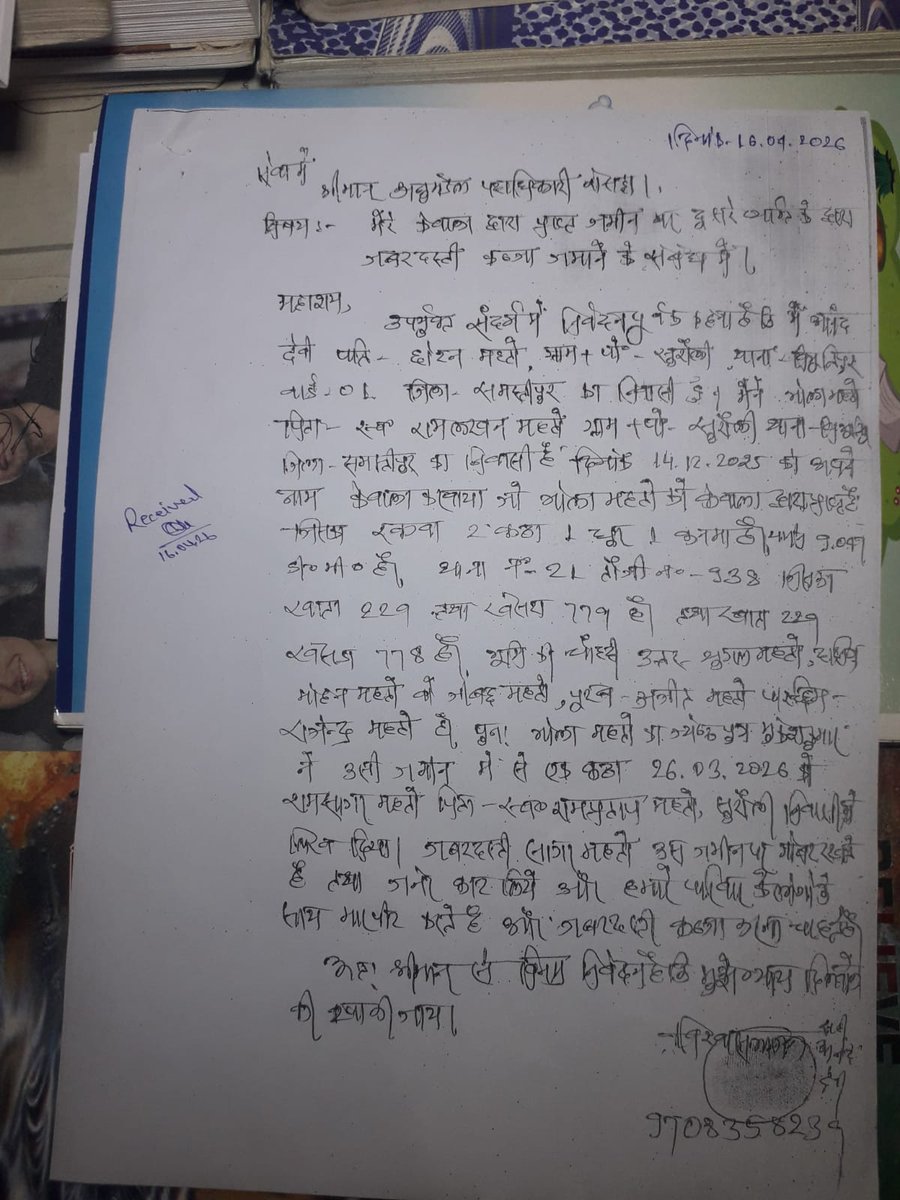 दिनांक- 16.04.2026
सेवा में
श्रीमान अनुमंडल पदाधिकारी रोसड़ा।
विषय :- मेरे केवाला द्वारा प्राप्त जमीन पर दूसरे व्यक्ति के द्वारा
जबरदस्ती कब्जा जमाने के संबंध में।
महाशय,
उपर्युक्त संदर्भ में निवेदनपूर्वक कहना है कि मैं
देवी पति- महतो, ग्राम + पो- थाना-
वार्ड-01 जिला- समस्तीपुर का निवासी हूँ। मैंने भोला महतो
पिता- स्व रामलखन महतो ग्राम + पो- थाना-
जिला- समस्तीपुर का निवासी है दिनांक 14.12.2025 को अपने
नाम केवाला कराया जो भोला महतो को केवाला द्वारा प्राप्त है
जिसका रकवा 2 कठा 1 धूर 1 कनमा है।
डी०मी० है। थाना नं०- 21 तौजी नं०- 938 जिसका
खाता 229 तथा खेसरा 779 है। तथा खाता 229
खेसरा 778 है। भूमि का चौहदी उत्तर महतो, दक्षिण
मोहन महतो वो गोविंद महतो, पूरब- अजीत महतो पश्चिम-
राजेन्द्र महतो है। पुनः भोला महतो का ज्येष्ठ पुत्र मुकेश कुमार
ने उसी जमीन में से एक कठा 26.03.2026 में
महतो पिता- स्व० रामप्रताप महतो, निवासी को
लिख दिया। जबरदस्ती महतो उस जमीन पर गोबर रखते
है तथा कर लिये और हमारे परिवार के लोगों के
साथ मारपीट करते है और जबरदस्ती कब्जा करना चाहते है।
अतः श्रीमान से विनम्र निवेदन है कि मुझे न्याय दिलाने
की कृपा की जाय।
देवी
Received
16.04.26